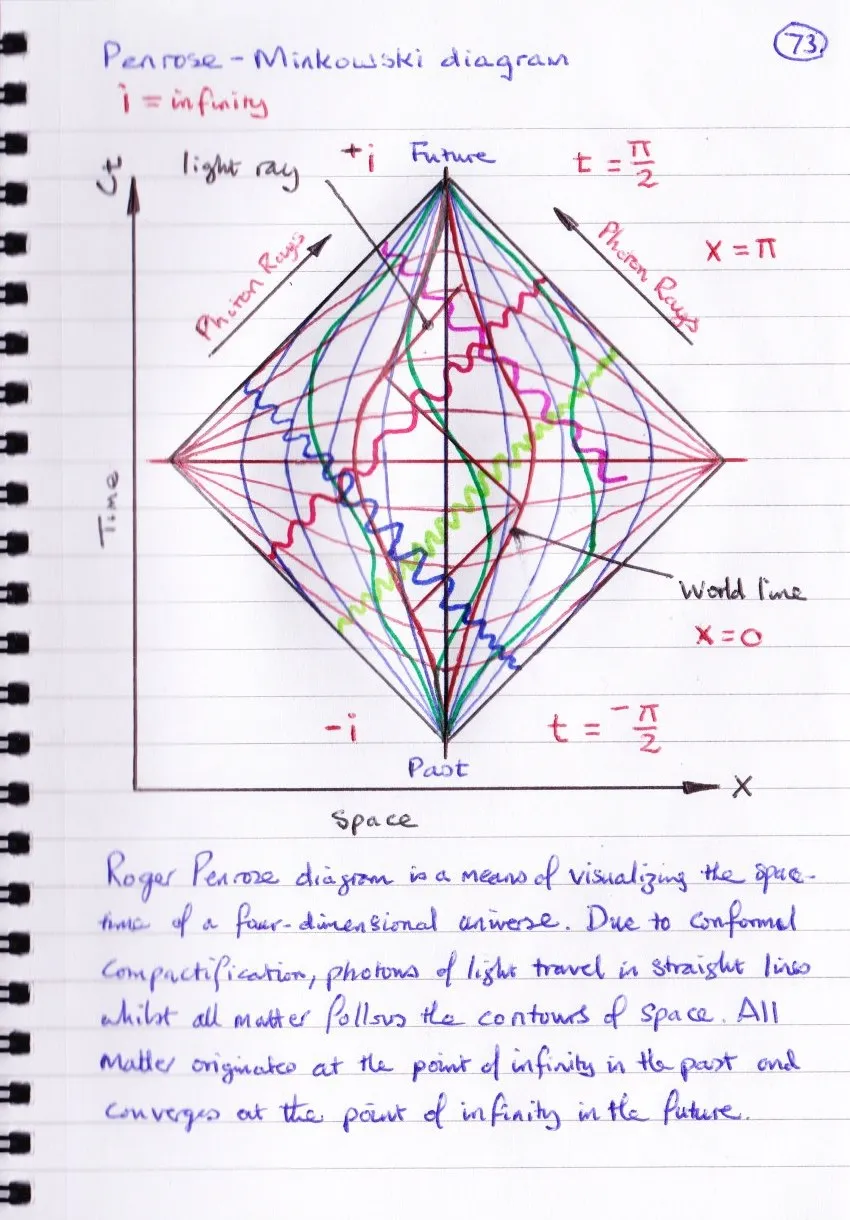 73
Penrose - Minkowski diagram
i = infinity
light ray
+i
Future
t = π/2
ct
Photon Rays
Photon Rays
x = π
Time
World line
x = 0
-i
t = -π/2
Past
X
Space
Roger Penrose diagram is a means of visualizing the space-
time of a four-dimensional universe. Due to conformal
compactification, photons of light travel in straight lines
whilst all matter follows the contours of space. All
matter originates at the point of infinity in the past and
converges at the point of infinity in the future.